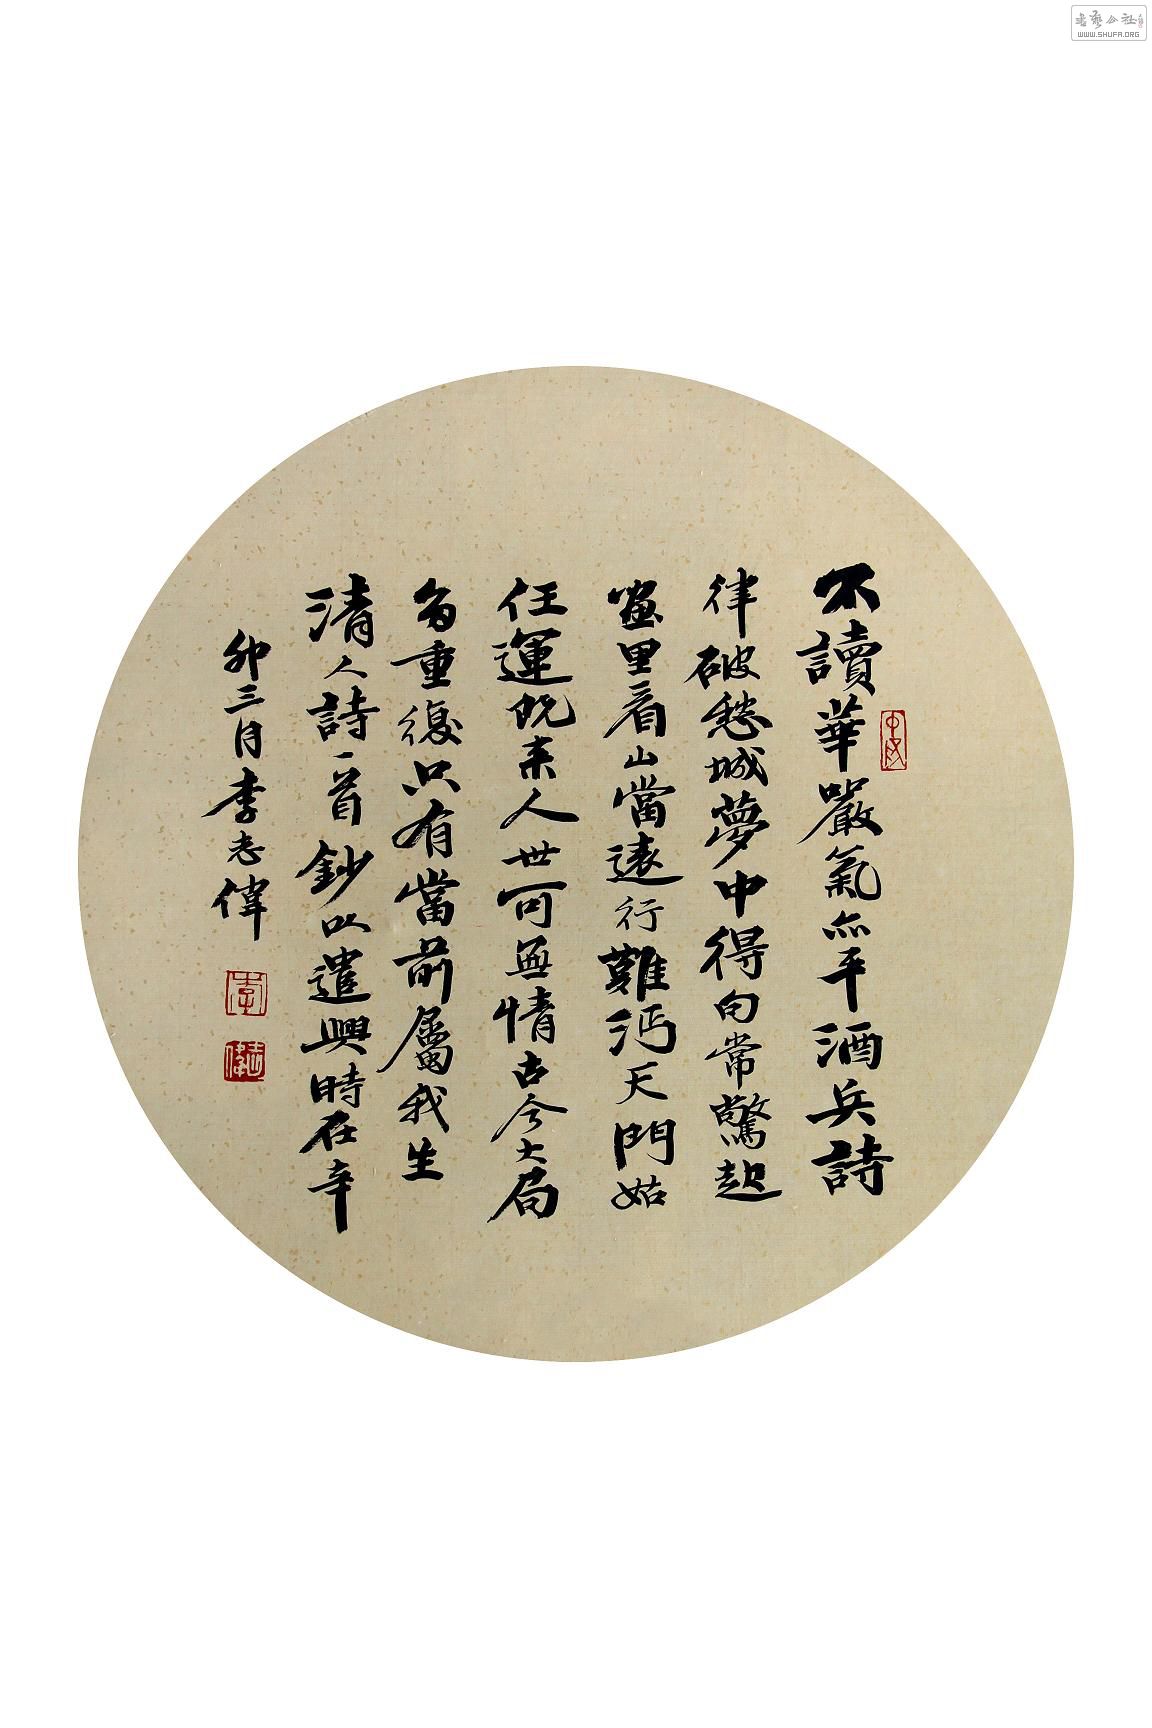 不讀華嚴氣亦平酒兵詩
律破愁城夢中得句常驚起
畫里看山當遠行難沔天門姑
任運既来人世可無情古今大局
多重復只有當前屬我生
清人詩一首鈔以遣興時在辛
卯三月李志偉
WWW.SHUFA.ORG